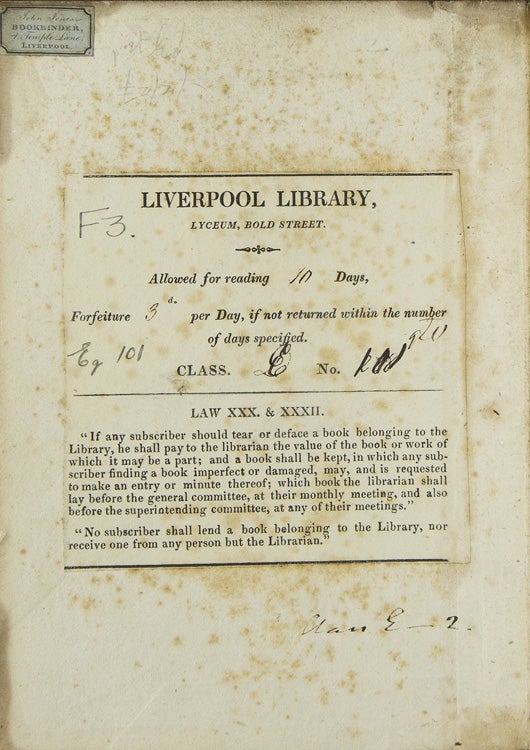 John Jones
BOOKBINDER,
Temple Lane,
LIVERPOOL.
LIVERPOOL LIBRARY,
LYCEUM, BOLD STREET.
F3.
Allowed for reading 10 Days,
Forfeiture 3 d. per Day, if not returned within the number
of days specified.
Eg 101
CLASS. E No.
LAW XXX. & XXXII.
"If any subscriber should tear or deface a book belonging to the
Library, he shall pay to the librarian the value of the book or work of
which it may be a part; and a book shall be kept, in which any sub-
scriber finding a book imperfect or damaged, may, and is requested
to make an entry or minute thereof; which book the librarian shall
lay before the general committee, at their monthly meeting, and also
before the superintending committee, at any of their meetings."
"No subscriber shall lend a book belonging to the Library, nor
receive one from any person but the Librarian."
Class E — 2.